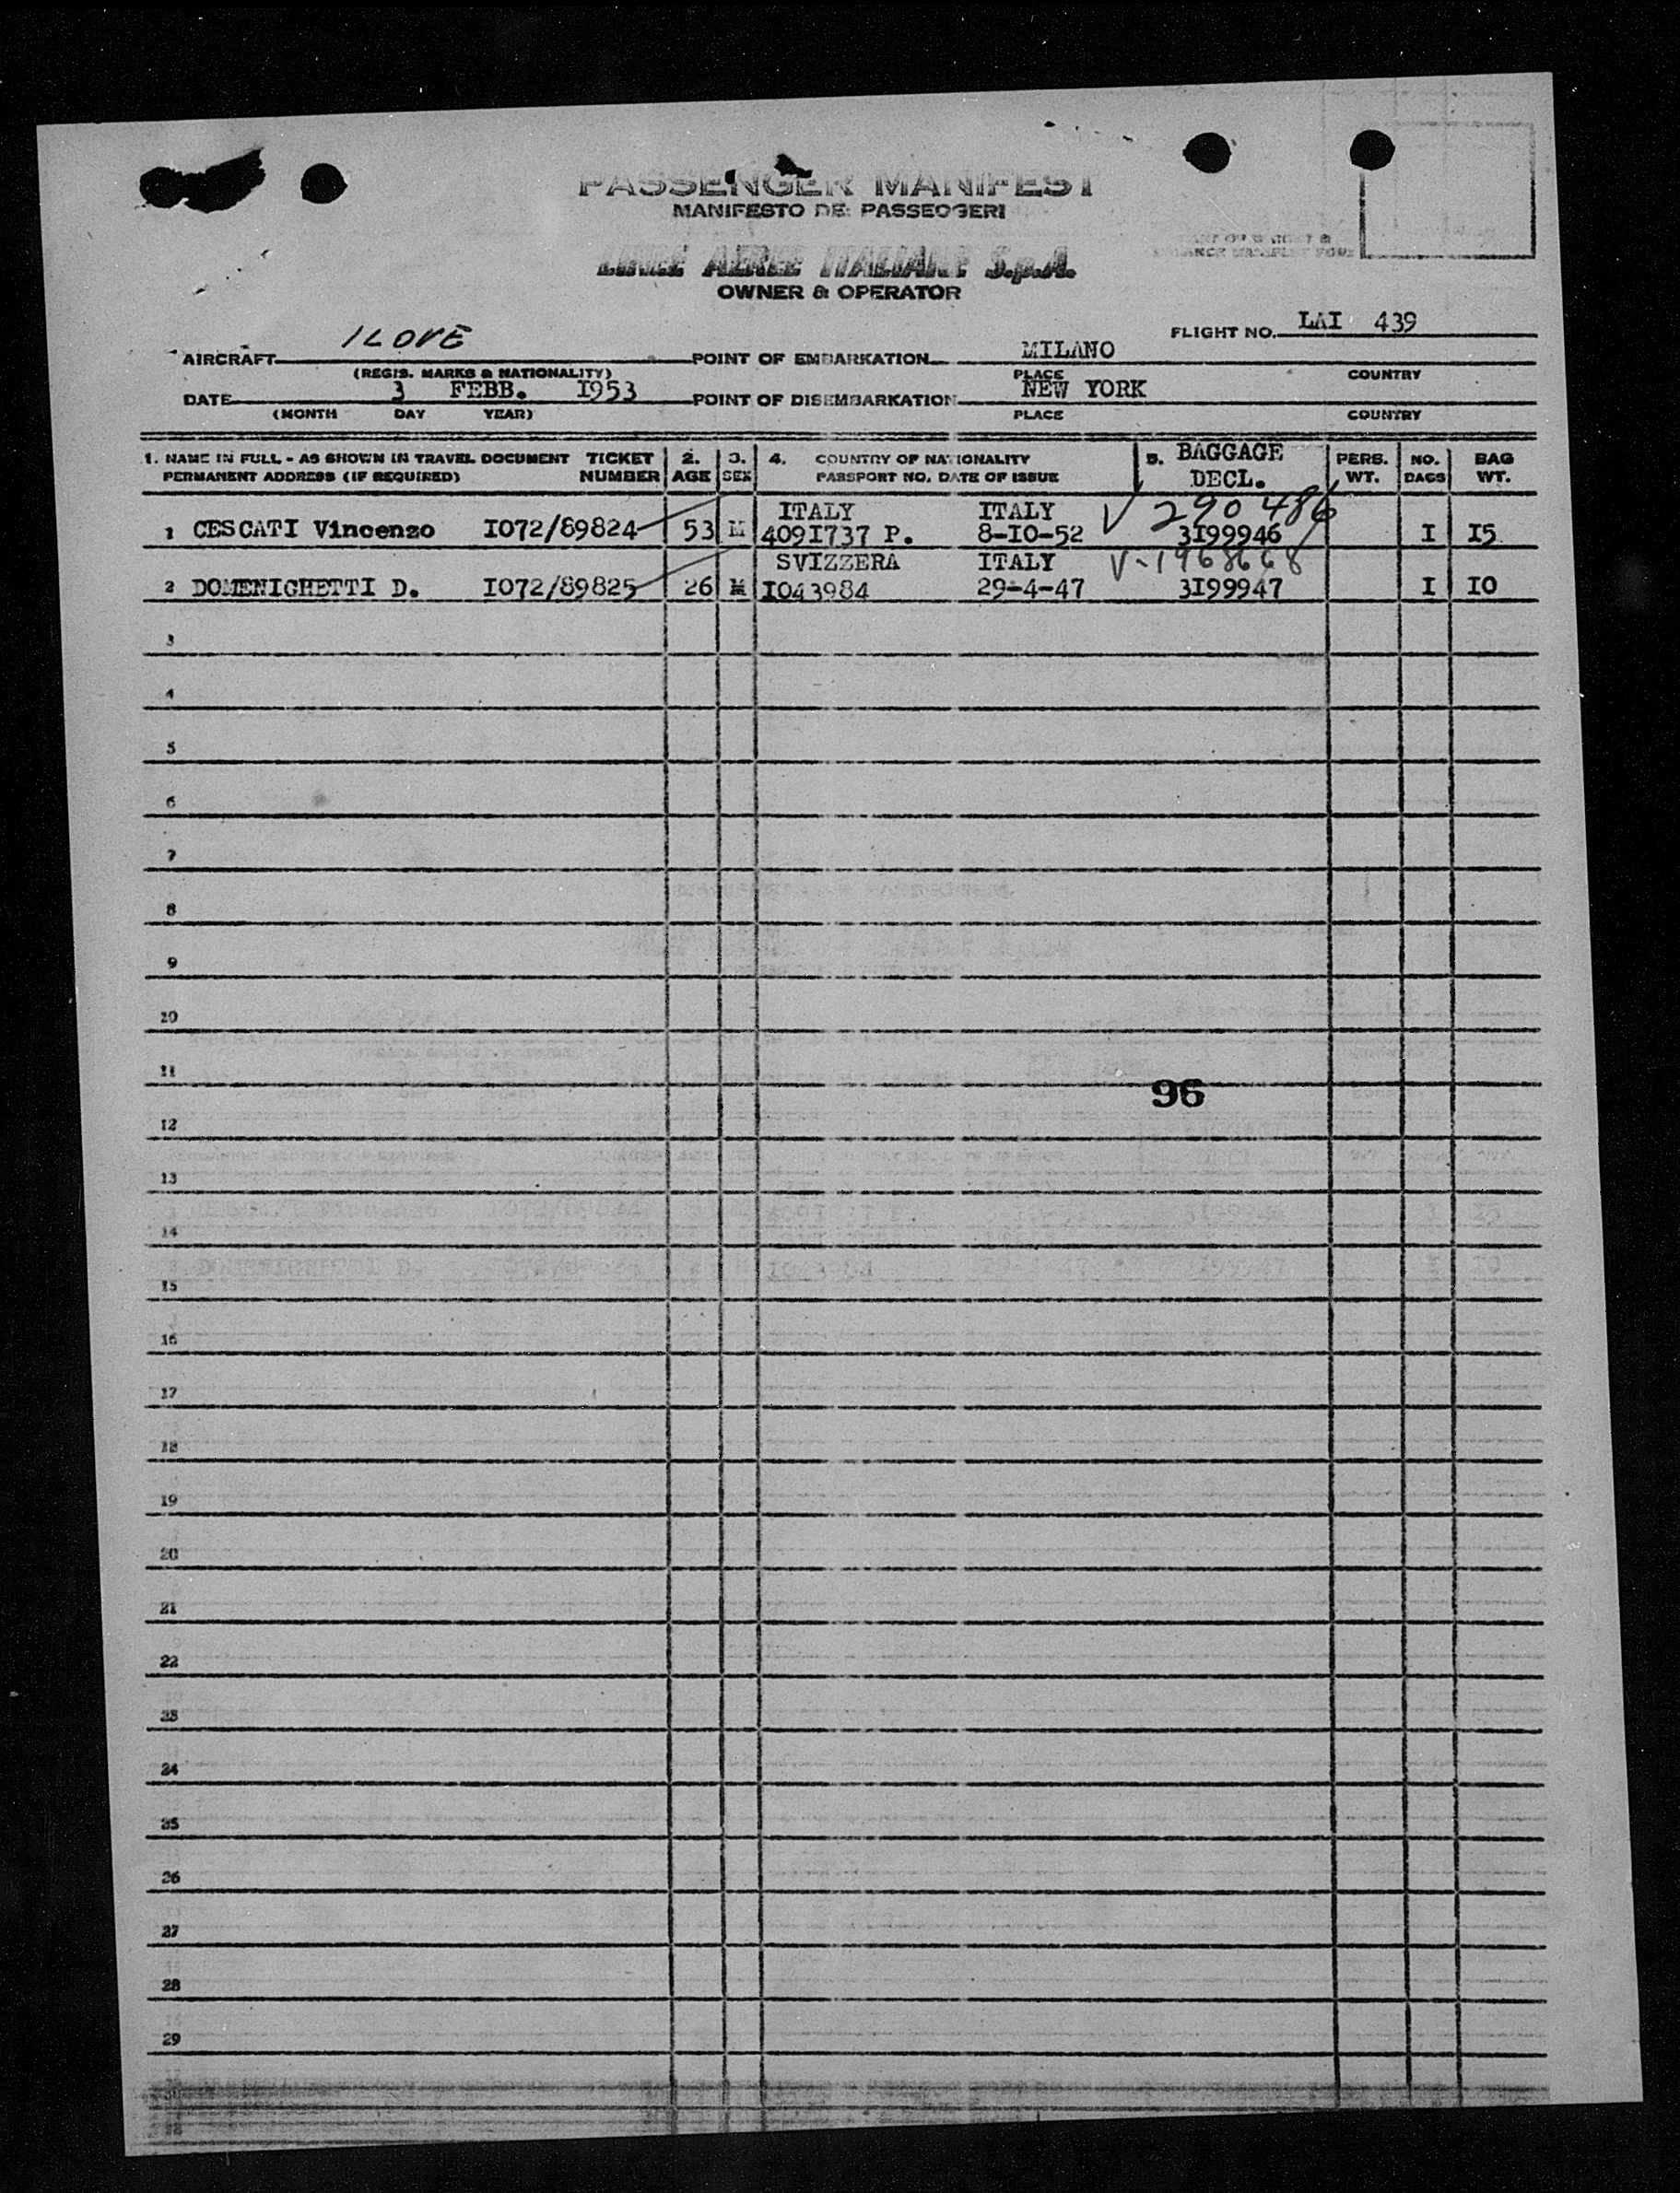 PASSENGER MANIFEST
MANIFESTO DEI PASSEGGERI
LINEE AEREE ITALIANE S.p.A.
OWNER & OPERATOR
FLIGHT NO. LAI 439
AIRCRAFT ILOVE POINT OF EMBARKATION MILANO
(REGIS. MARKS & NATIONALITY) PLACE COUNTRY
DATE 3 FEBB. I953 POINT OF DISEMBARKATION NEW YORK
(MONTH DAY YEAR) PLACE COUNTRY
1. NAME IN FULL - AS SHOWN IN TRAVEL DOCUMENT TICKET 2. 3. 4. COUNTRY OF NATIONALITY 5. BAGGAGE PERS. NO. BAG
PERMANENT ADDRESS (IF REQUIRED) NUMBER AGE SEX PASSPORT NO. DATE OF ISSUE DECL. WT. BAGS WT.
ITALY ITALY V 290486
1 CESCATI Vincenzo I072/89824 53 M 409I737 P. 8-I0-52 3I99946 I I5
SVIZZERA ITALY V-1968668
2 DOMENIGHETTI D. I072/89825 26 M I043984 29-4-47 3I99947 I I0
3
4
5
6
7
8
9
10
11
96
12
13
14
15
16
17
18
19
20
21
22
23
24
25
26
27
28
29